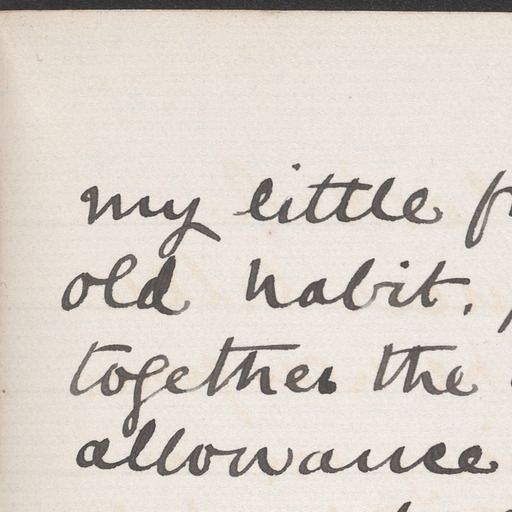 my little
old habit.
together the
allowance